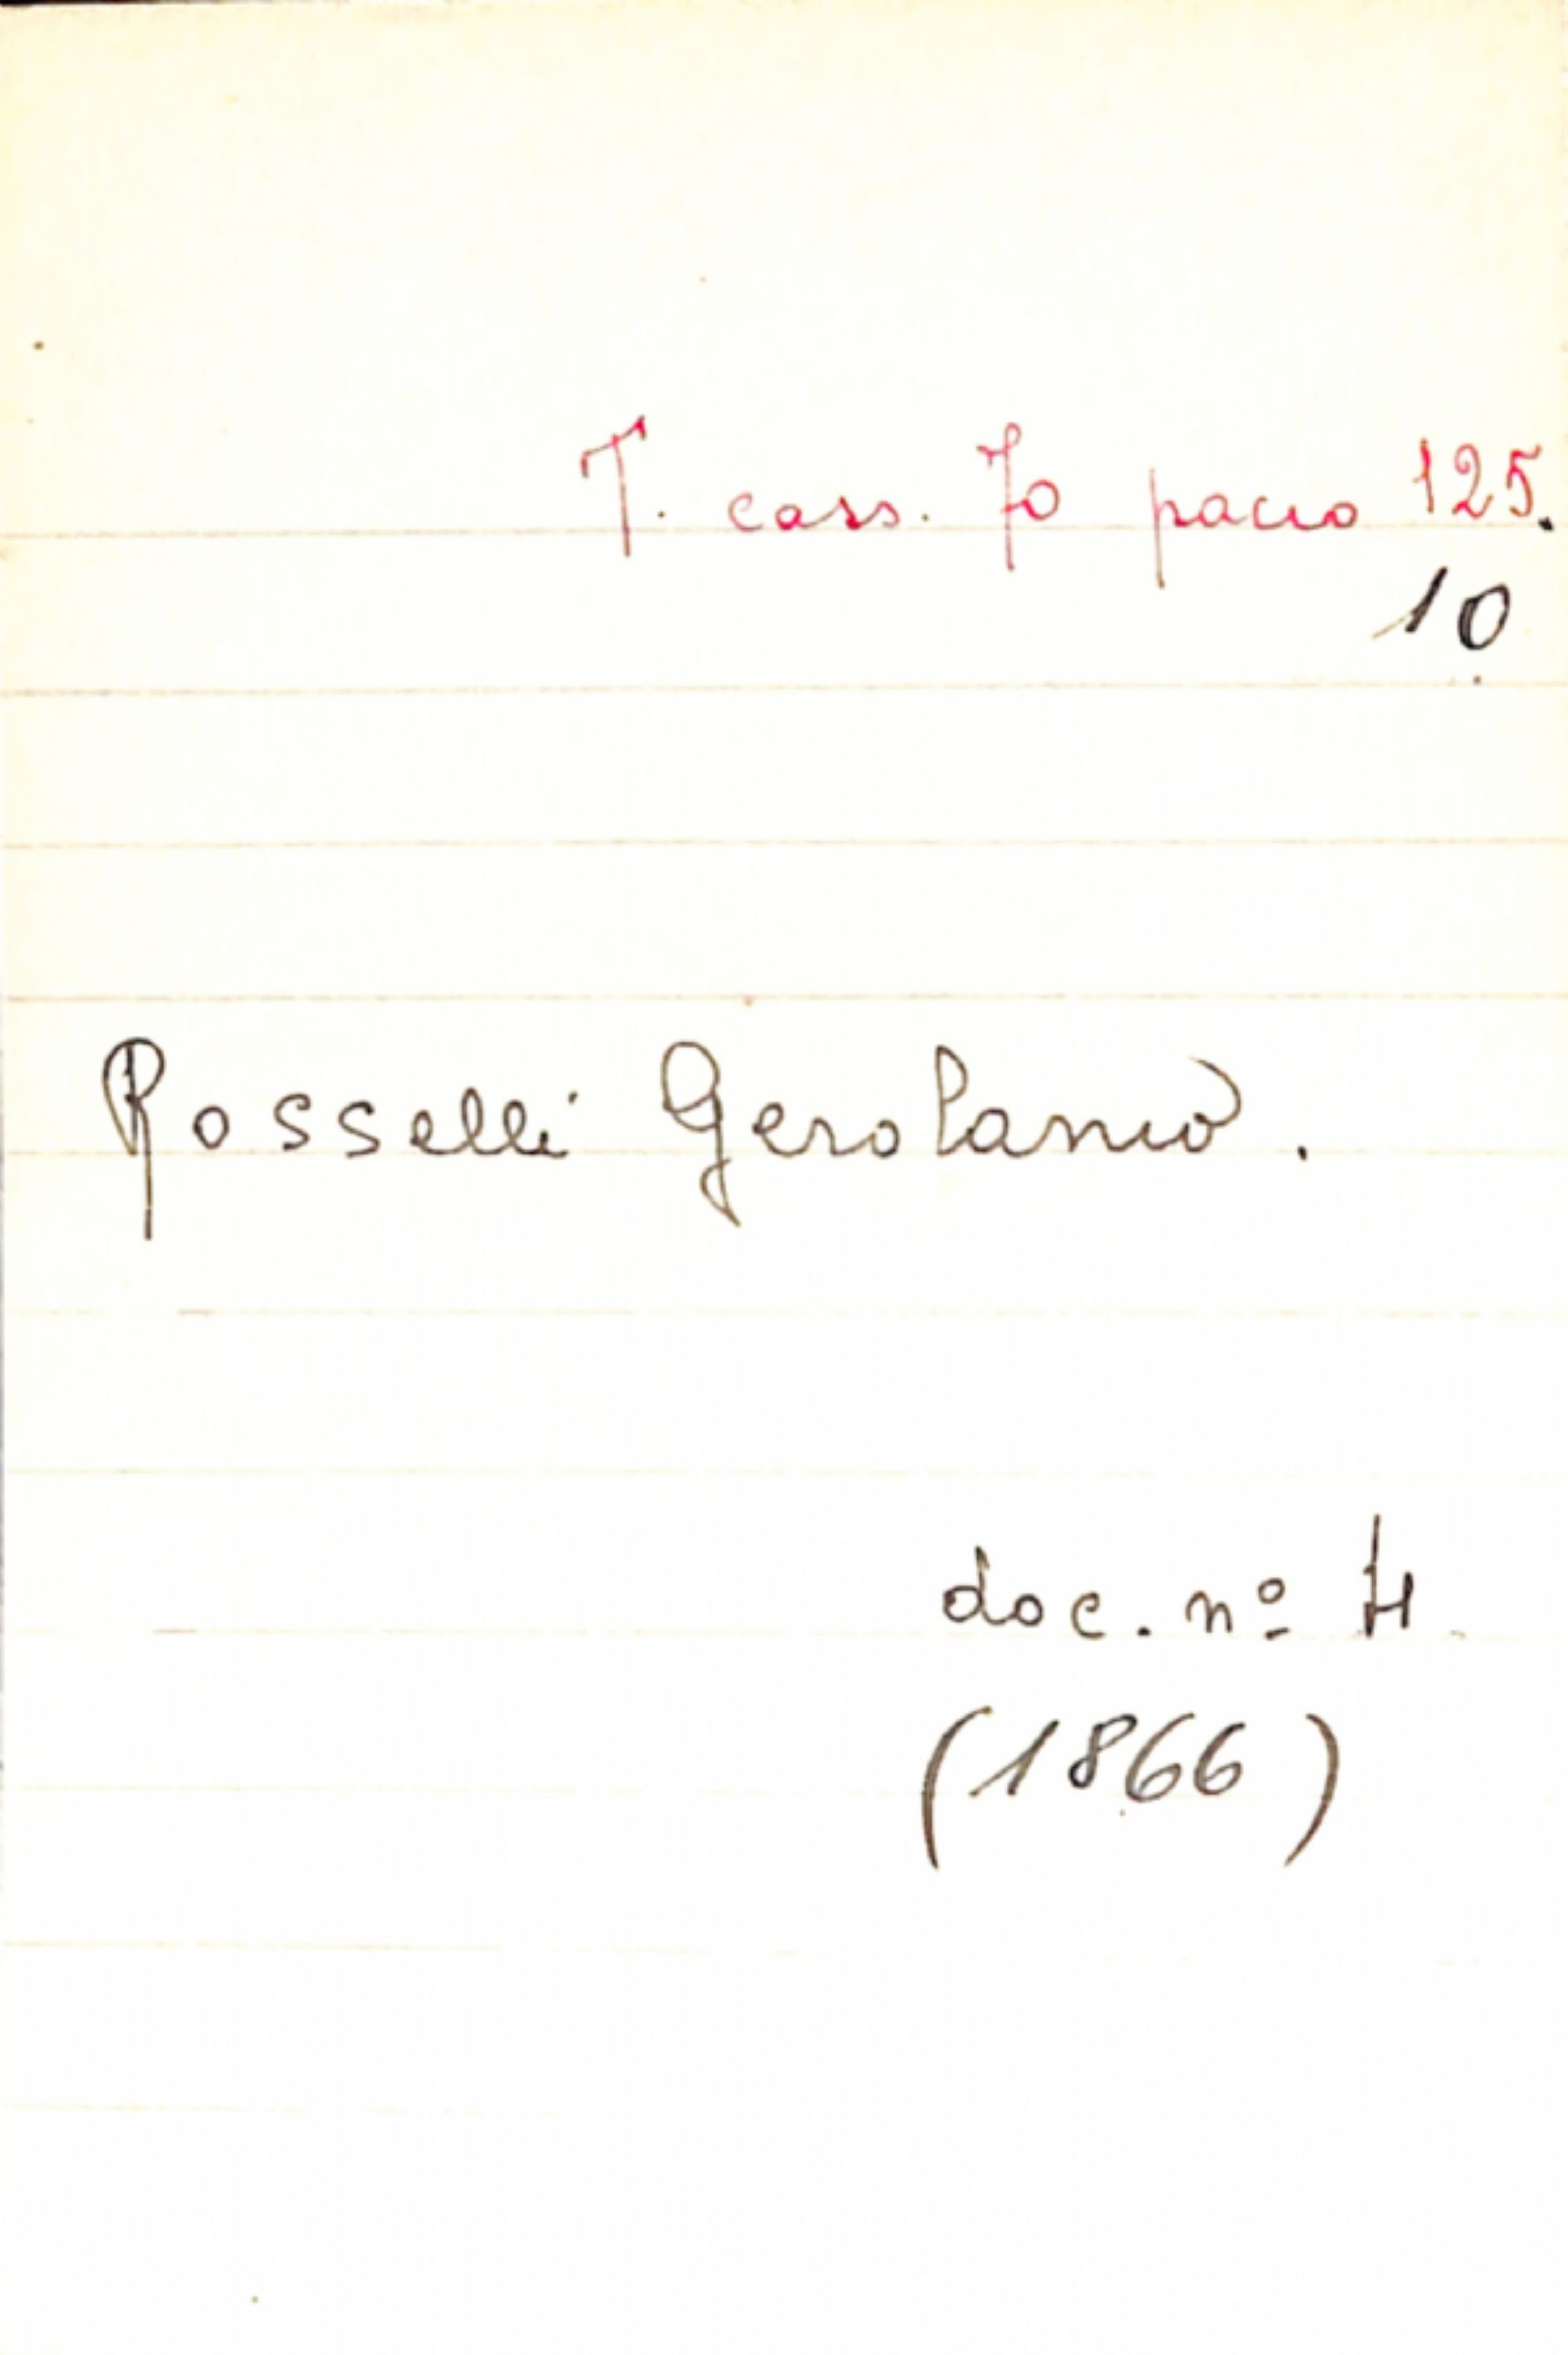 T. cass. 70 pacco 125.
10
Rosselli Gerolamo.
doc. nº 4.
(1866)